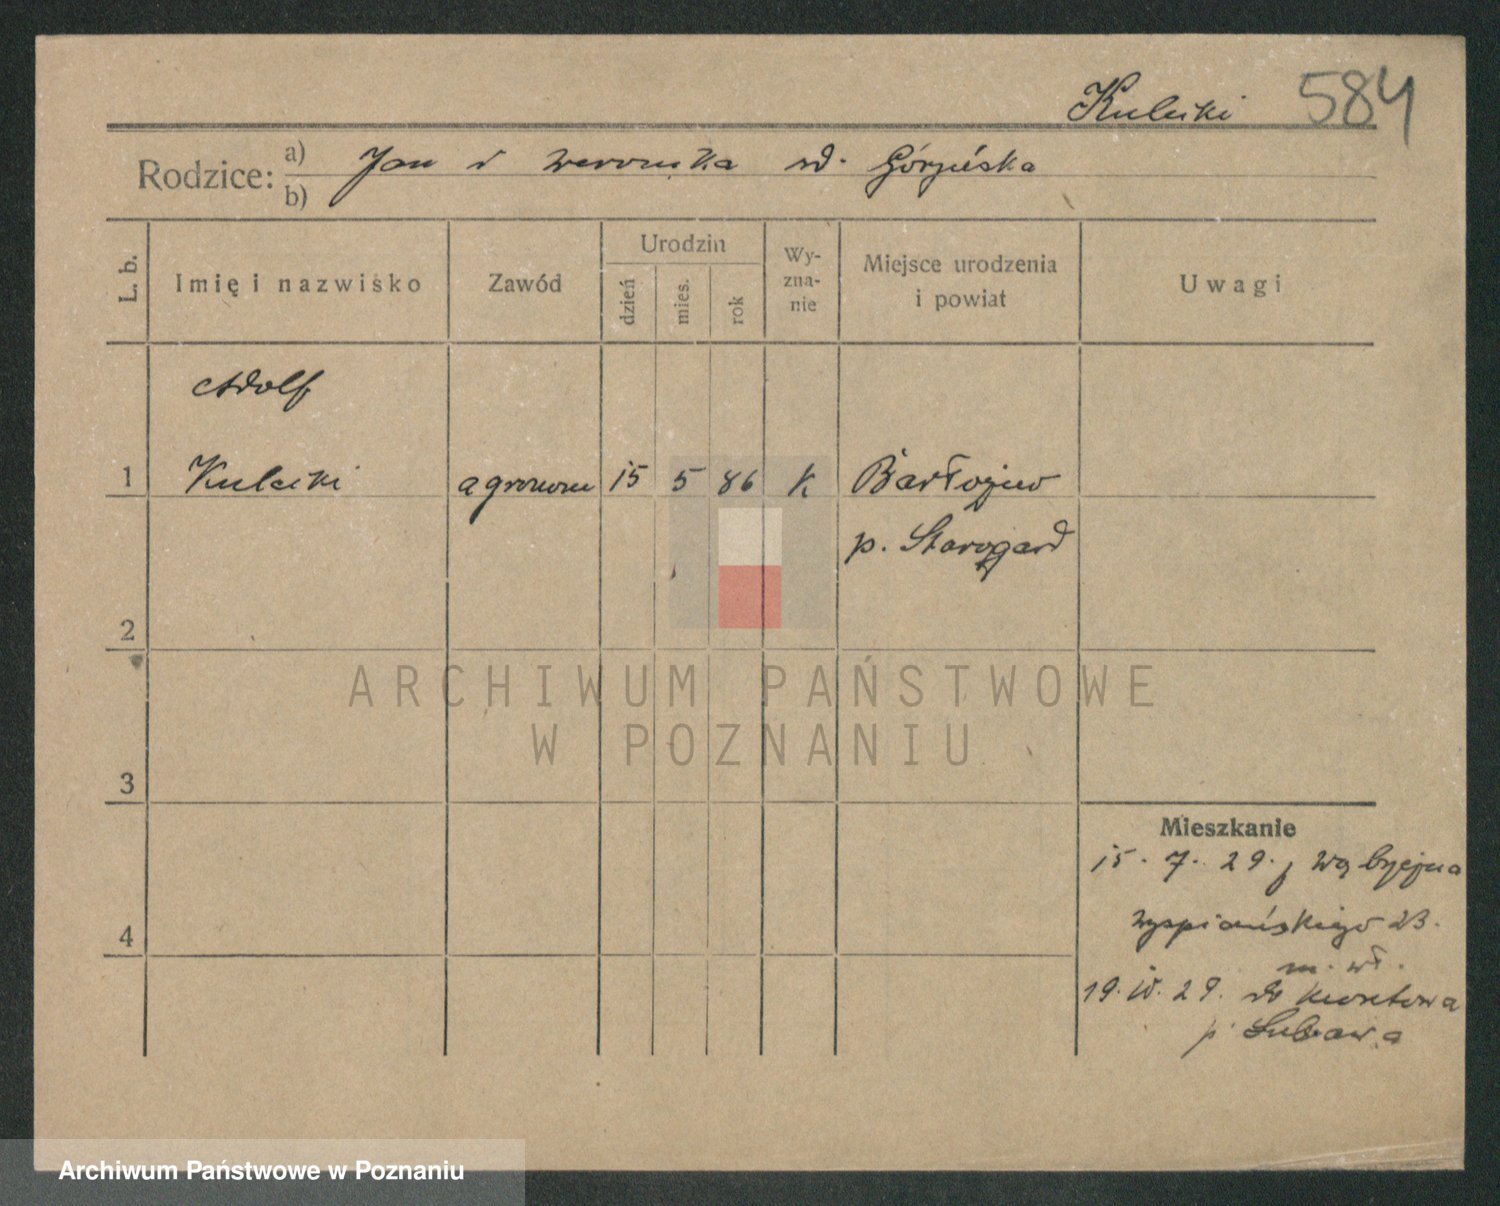 Kulciki 584
Rodzice: a) b) Jan i Weronika zd. Górzńska
L. b. Imię i nazwisko Zawód Urodzin dzień mies. rok Wy-zna-nie Miejsce urodzenia i powiat Uwagi
Adolf
1 Kulciki agronom 15 5 86 k Bartożew
p. Starogard
2
3
4
Mieszkanie
15. 7. 29. z
Wyspiańskiego 23.
m. wł.
19. 29. do
p. Lubawa
ARCHIWUM PAŃSTWOWE
W POZNANIU
Archiwum Państwowe w Poznaniu